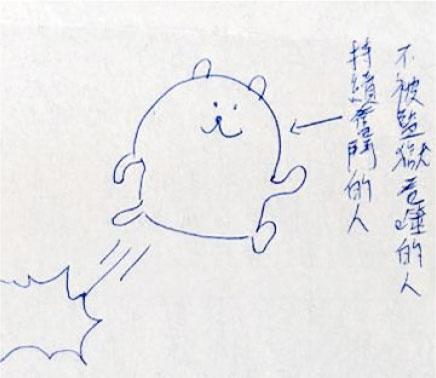 不被監獄的人
持續奮鬥的人